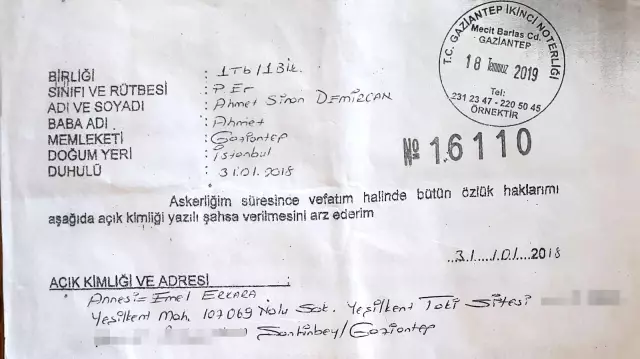 T.C. GAZİANTEP İKİNCİ NOTERLİĞİ
Mecit Barlas Cd.
GAZİANTEP
18 Temmuz 2019
Tel:
231 23 47 - 220 50 45
ÖRNEKTİR
BİRLİĞİ : 1Tb/1Blk.
SINIFI VE RÜTBESİ : P Er
ADI VE SOYADI : Ahmet Sinan DEMİRCAN
BABA ADI : Ahmet
MEMLEKETİ : Gaziantep
DOĞUM YERİ : İstanbul
DUHULÜ : 31.01.2018
№ 16110
Askerliğim süresince vefatım halinde bütün özlük haklarımı
aşağıda açık kimliği yazılı şahsa verilmesini arz ederim
31/01/2018
AÇIK KİMLİĞİ VE ADRESİ :
Annesi= Emel ERKARA
Yeşilkent Mah. 107069 Nolu Sok. Yeşilkent Toki Sitesi
/Gaziantep